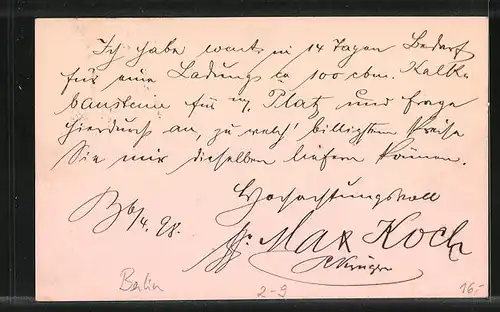 Ich habe in 14 Tagen Bedarf
für eine Ladung 100 cbm. Kalk
bausteine für m. Platz und frage
hierdurch an, zu welch' billigstem Preise
Sie mir dieselben liefern können.
Hochachtungsvoll
B 6/4. 98.
Max Koch
Krüger
Berlin
2-9
16.-